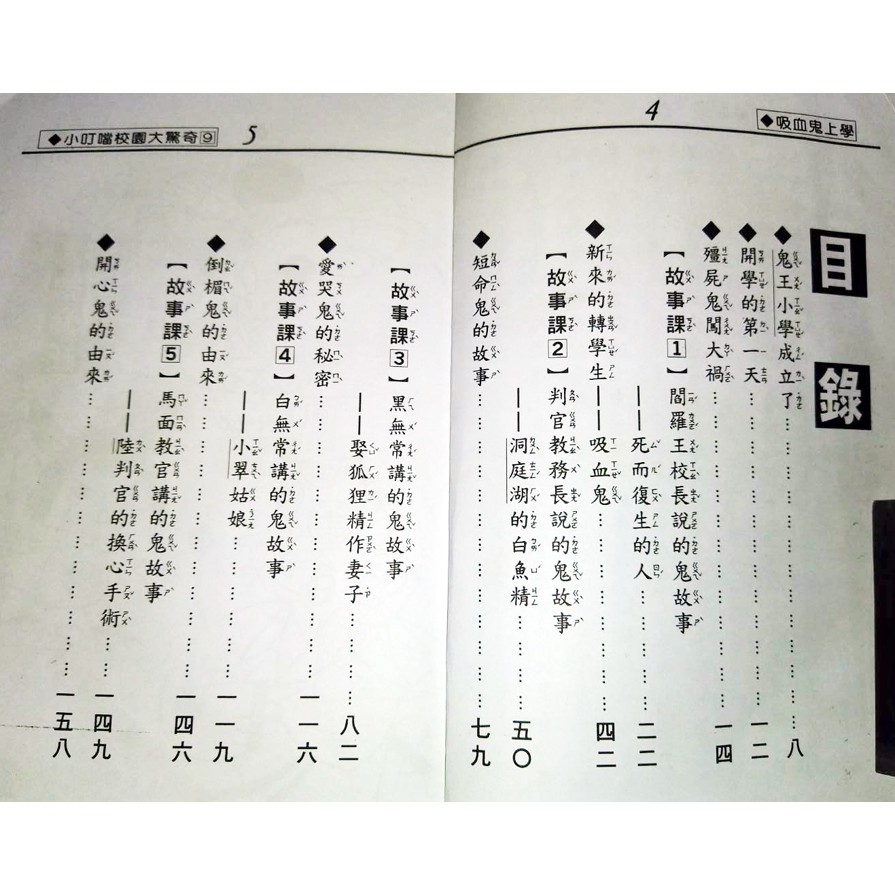 ◆吸血鬼上學
4
目錄
◆鬼王小學成立了……八
◆開學的第一天……一二
◆殭屍鬼闖大禍……一四
【故事課1】閻羅王校長說的鬼故事
——死而復生的人……二二
◆新來的轉學生——吸血鬼……四二
【故事課2】判官教務長說的鬼故事
——洞庭湖的白魚精……五〇
◆短命鬼的故事……七九
5
◆小叮噹校園大驚奇9
【故事課3】黑無常講的鬼故事
——娶狐狸精作妻子……八二
◆愛哭鬼的秘密……一一六
【故事課4】白無常講的鬼故事
——小翠姑娘……一一九
◆倒楣鬼的由來……一四六
【故事課5】馬面教官講的鬼故事
——陸判官的換心手術……一四九
◆開心鬼的由來……一五八